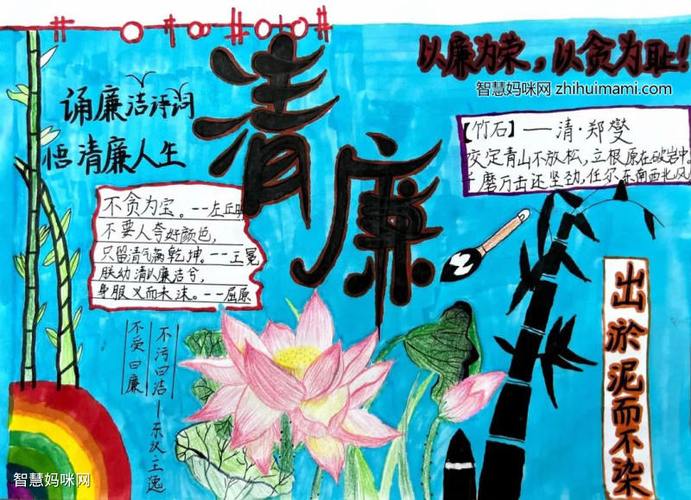 以廉为荣，以贪为耻！
智慧妈咪网 zhihuimami.com
清廉
诵廉洁诗词
悟清廉人生
【竹石】——清·郑燮
咬定青山不放松，立根原在破岩中。
千磨万击还坚劲，任尔东南西北风
不贪为宝。--左丘明
不要人夸好颜色，
只留清气满乾坤。--王冕
朕幼清以廉洁兮，
身服义而未沫。--屈原
不污曰洁—东汉王逸
不受曰廉
出淤泥而不染
智慧妈咪网